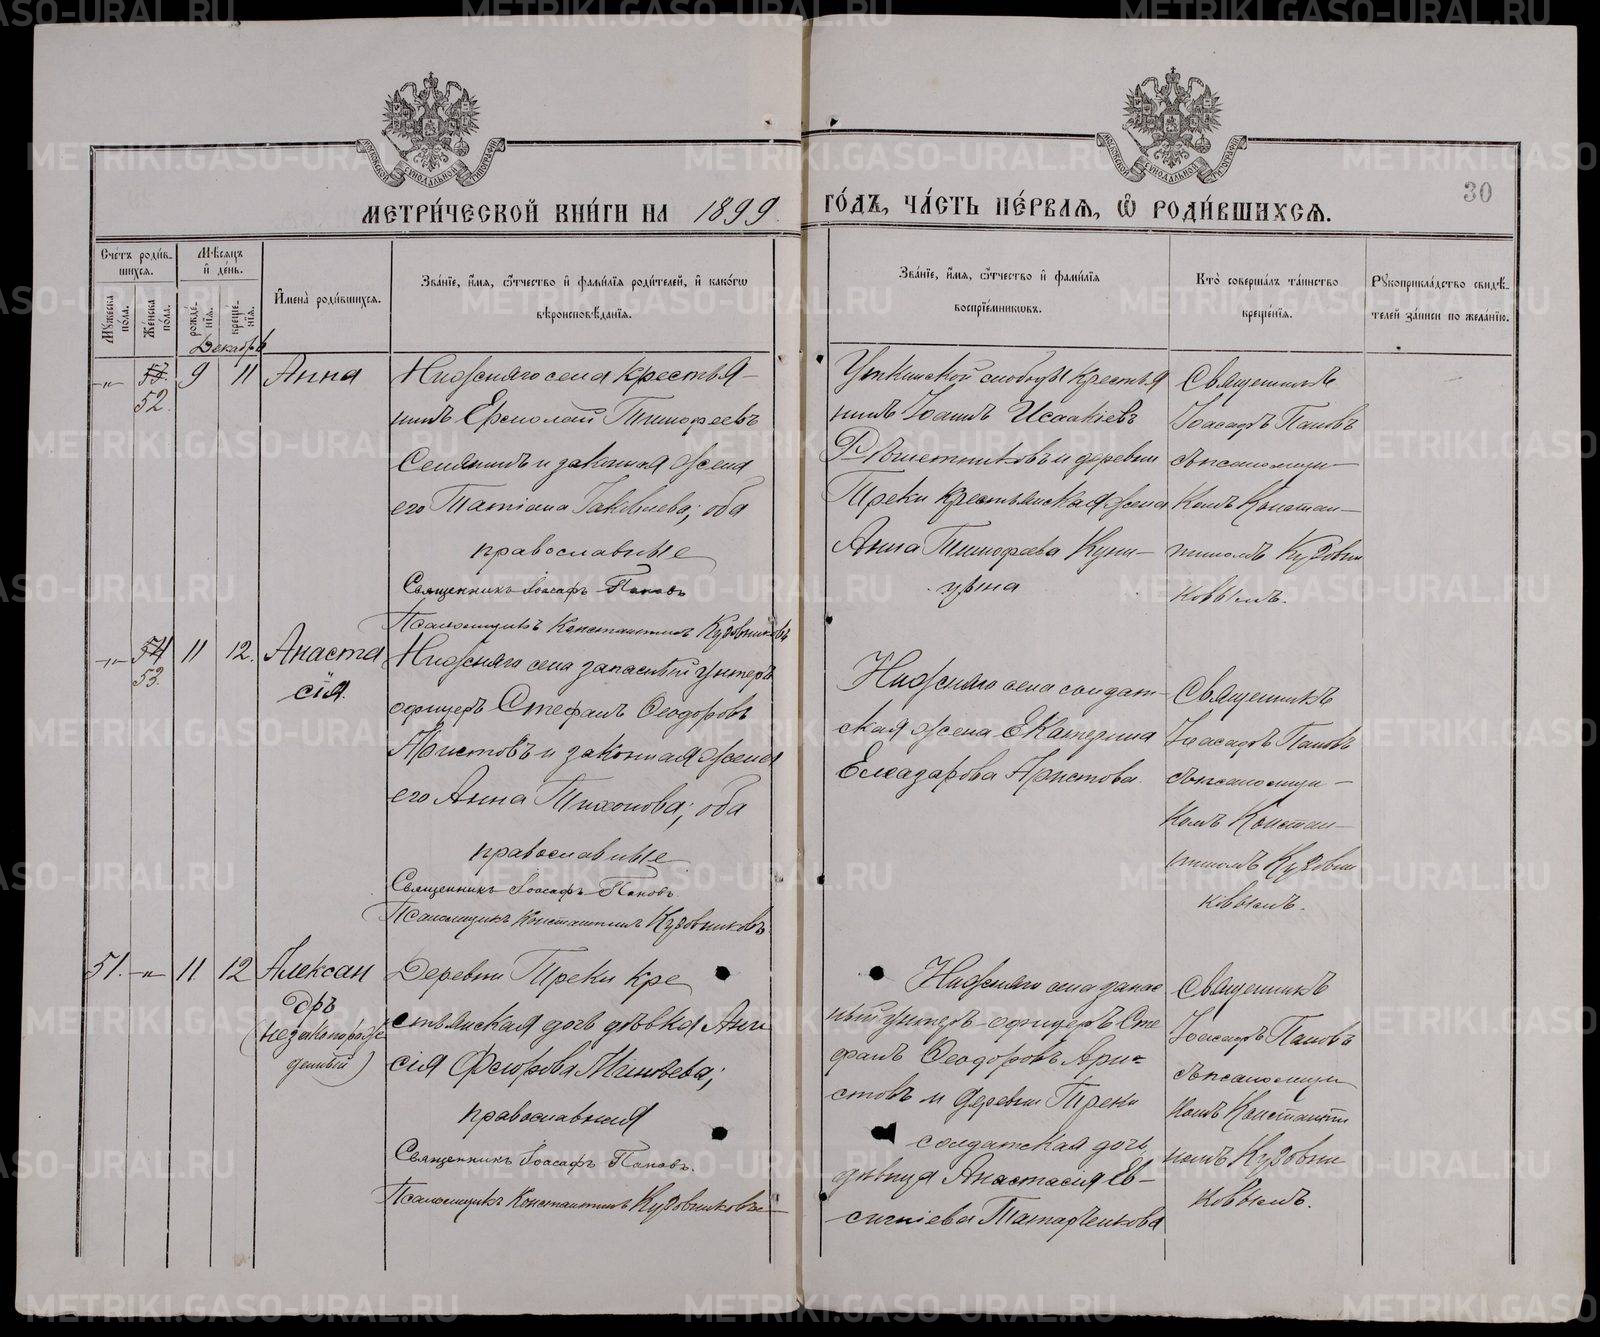 30
МЕТРИ́ЧЕСКОЙ КНИ́ГИ НА 1899 ГО́ДЪ, ЧА́СТЬ ПЕ́РВАЯ, Ѽ РОДИ́ВШИХСЯ.
Сче́тъ роди́в-
шихся.
Мѣ́сяцъ
и де́нь.
Мꙋ́жеска
по́ла.
Же́нска
по́ла.
рожде́-
нїя.
креще́-
нїя.
Декабрь
И҆мена̀ роди́вшихся.
Зва́нїе, и҆́мя, ѻ҆́тчество и҆ фами́лїя роди́телей, и҆ како́гѡ
вѣроисповѣ́данїя.
Зва́нїе, и҆́мя, ѻ҆́тчество и҆ фами́лїя
воспрїе́мникѡвъ.
Кто̀ соверша́лъ та́инство
креще́нїя.
Рꙋкоприкла́дство свидѣ́-
телей за́писи по жела́нїю.
-"- 52. 9 11 Анна
Нижняго села крестья-
нинъ Ермолай Тимофеевъ
и законная жена
его Татіана Іаковлева; оба
православные
Священникъ Іоасафъ Поповъ
Псаломщикъ Константинъ Кузовниковъ
Уткинской слободы крестья
нинъ Іоаннъ Исаакіевъ
и деревни
Треки крестьянская жена
Анна Тимофеева
Священникъ
Іоасафъ Поповъ
съ псаломщи-
комъ Констан-
тиномъ Кузовни
ковымъ.
-"- 54 53. 11 12. Анаста
сія.
Нижняго села запасный унтеръ
офицеръ Стефанъ Ѳеодоровъ
Аристовъ и законная жена
его Анна Тихонова; оба
православные
Священникъ Іоасафъ Поповъ
Псаломщикъ Константинъ Кузовниковъ.
Нижняго села солдат-
ская жена Екатерина
Елеазарова Аристова.
Священникъ
Іоасафъ Поповъ
съ псаломщи-
комъ Констан-
тиномъ Кузовни
ковымъ.
51. -"- 11 12 Алексан
дръ
(незаконорож
денный)
Деревни Треки кре
стьянская дочь дѣвка Ани
сія
православная
Священникъ Іоасафъ Поповъ.
Псаломщикъ Константинъ Кузовниковъ
Нижняго села запас
ный унтеръ-офицеръ Сте
фанъ Ѳеодоровъ Ари-
стовъ и деревни Треки
солдатская дочь
дѣвица Анастасия Ев-
сигніева Татарченкова
Священникъ
Іоасафъ Поповъ
съ псаломщи
комъ Константи
номъ Кузовни
ковымъ.
METRIKI.GASO-URAL.RU